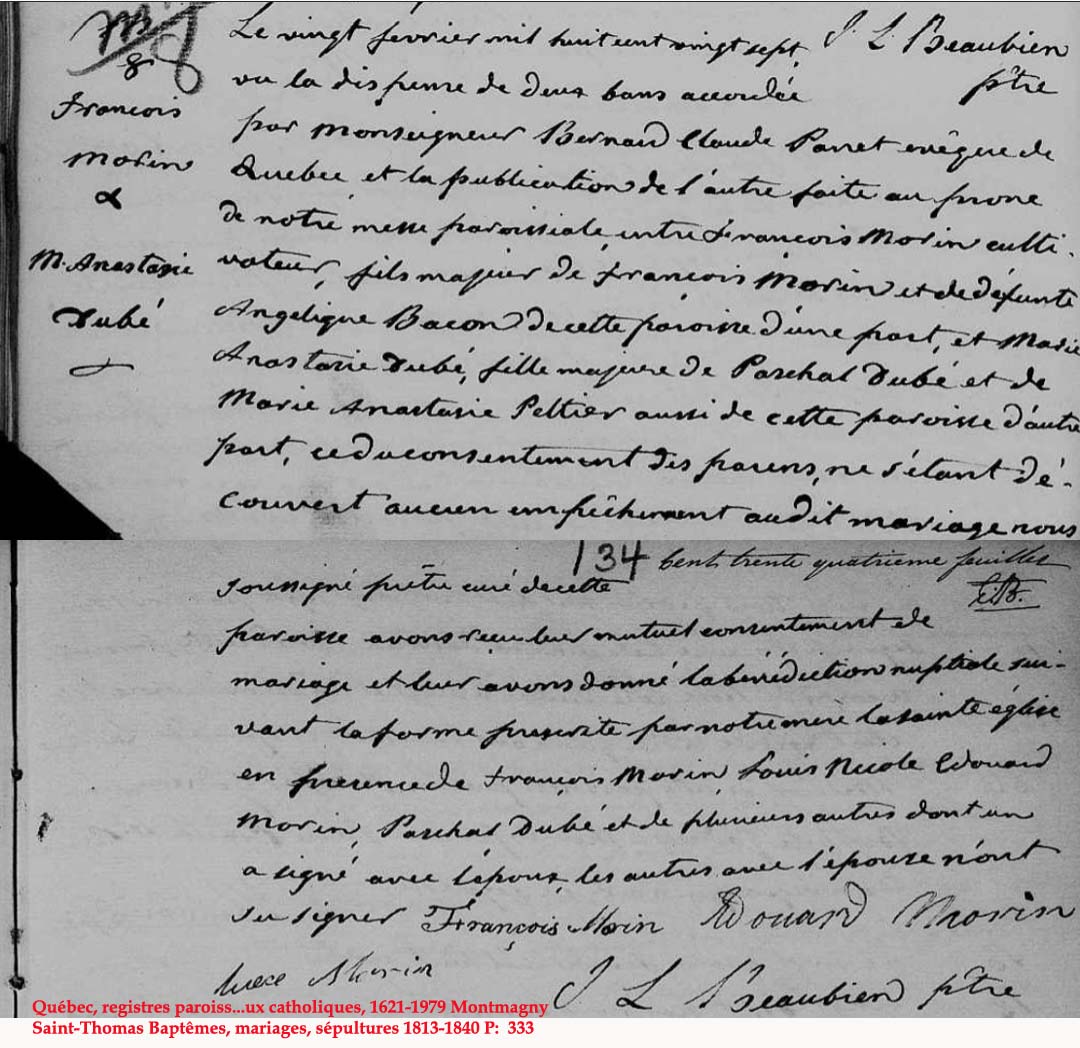 M 8
François
Morin
&
M. Anastasie
Dubé
J. L. Beaubien
ptre
Le vingt fevrier mil huit cent vingt sept,
vu la dispense de deux bans accordée
par Monseigneur Bernard Claude Panet evêque de
Quebec et la publication de l'autre faite au prone
de notre messe paroissiale, entre François Morin culti-
vateur, fils majeur de François Morin et de défunte
Angelique Bacon de cette paroisse d'une part, et Marie
Anastasie Dubé, fille majeure de Paschal Dubé et de
Marie Anastasie Peltier aussi de cette paroisse d'autre
part, ce du consentement des parens, ne s'étant dé-
couvert aucun empêchement audit mariage nous
134 Cent trente quatrieme feuillet
soussigné prêtre curé de cette
paroisse avons reçu leur mutuel consentement de
mariage et leur avons donné la bénédiction nuptiale sui-
vant la forme prescrite par notre mere la sainte église
en presence de François Morin Louis Nicole Edouard
Morin, Paschal Dubé et de plusieurs autres dont un
a signé avec l'époux, les autres avec l'épouse n'ont
su signer François Morin Edouard Morin
Morin
J. L. Beaubien ptre
Québec, registres paroiss...ux catholiques, 1621-1979 Montmagny
Saint-Thomas Baptêmes, mariages, sépultures 1813-1840 P: 333